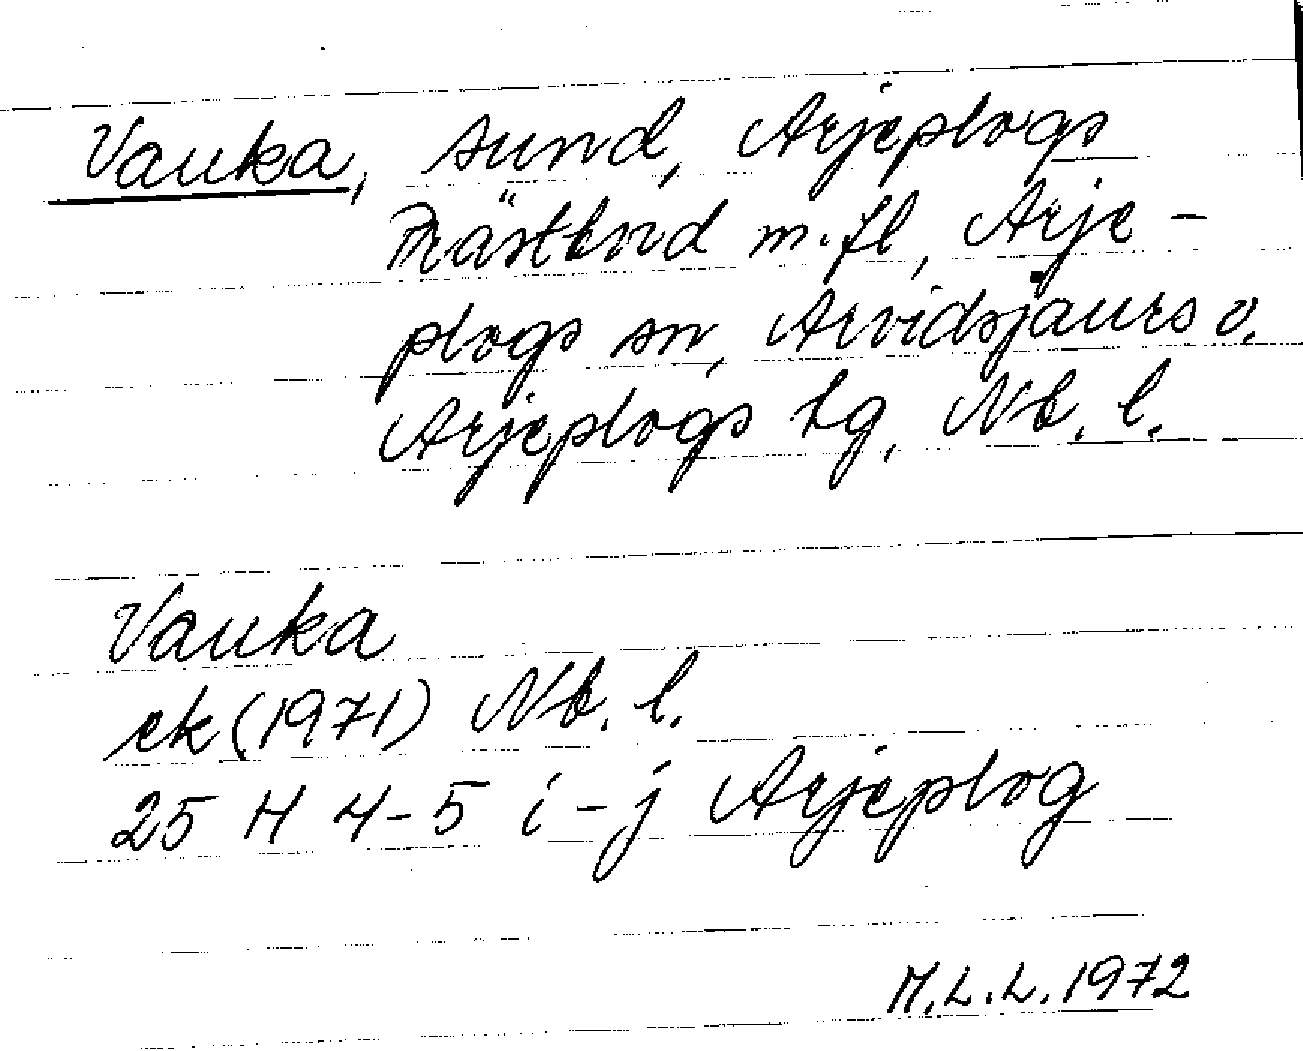 Vauka, sund, Arjeplogs
Prästbord m.fl, Arje-
plogs sn, Arvidsjaurs o.
Arjeplogs tg, Nb. l.
Vauka
ek (1971) Nb. l.
25 H 4-5 i-j Arjeplog
M.L.L. 1972